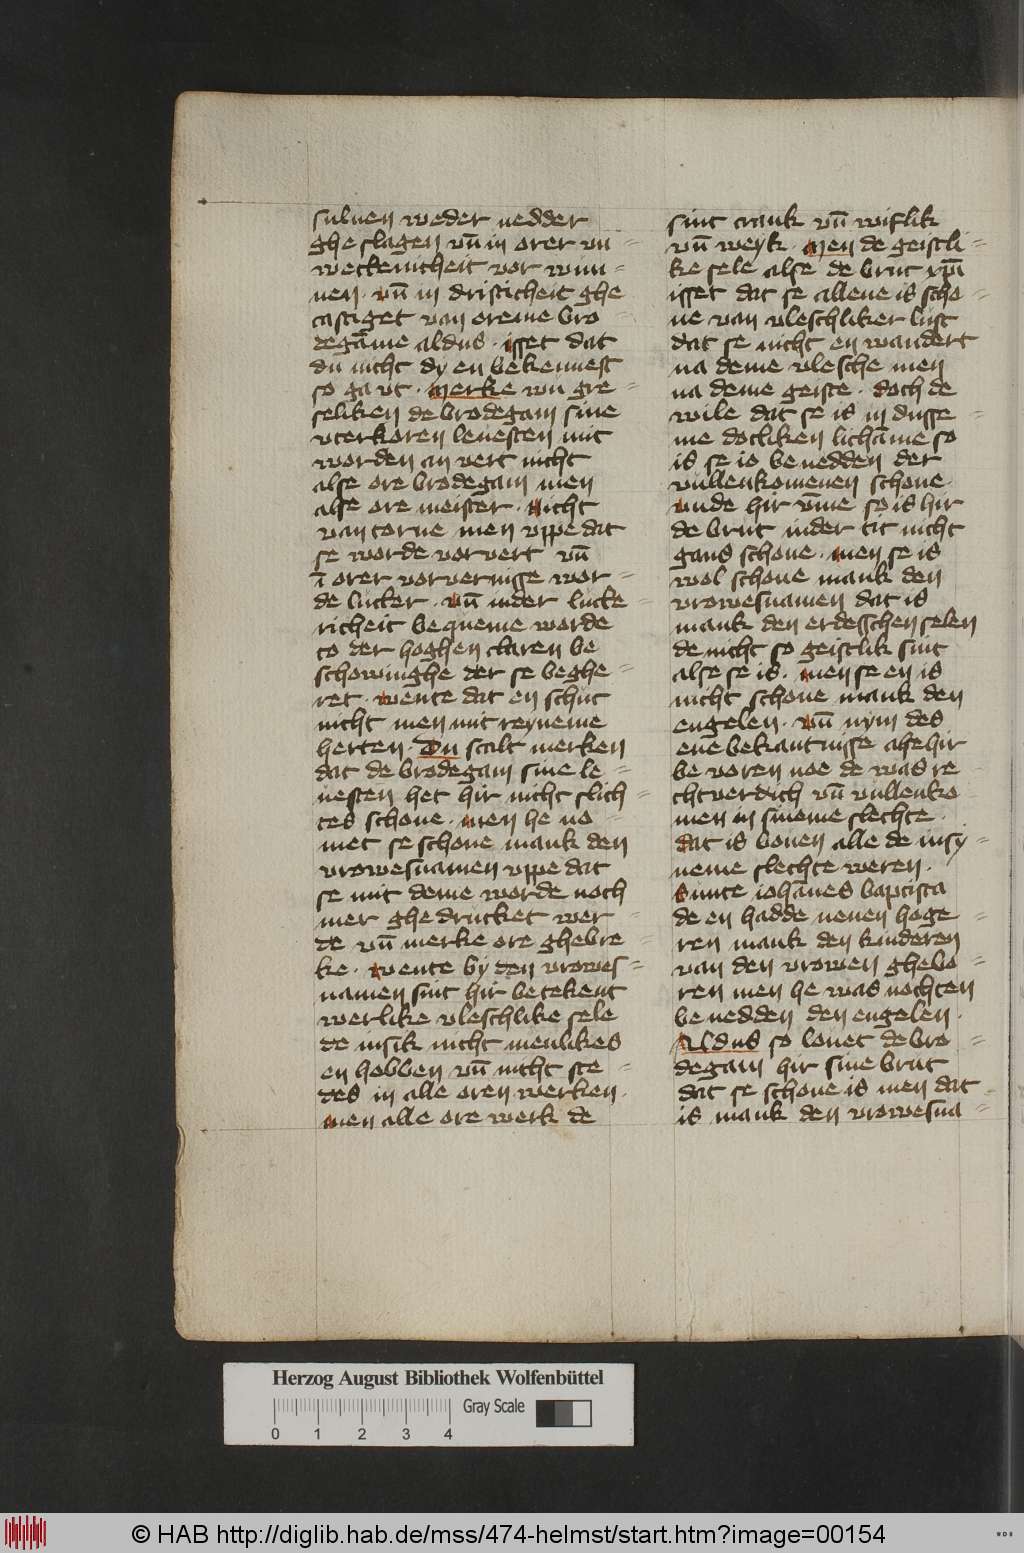 suluen weder nedder
ghe slagen vn̄ in orer vn=
weckenicheit vor wun=
nen. vn̄ in dristicheit ghe
castiget van oreme bro
degāme aldus. isset dat
du nicht dy en bekennest
so ga vt. Merke wu gre=
seliken de brodegam sine
vterkoren leuesten mit
worden an vert nicht
alse ore brodegam men
alse ore meister. Nicht
van torne men vppe dat
se worde vorvert vn̄
ī orer vorvernisse wor=
de lucter. vn̄ inder lucte=
richeit bequeme worde
to der hoghen claren be
schowinghe der se beghe=
ret. wente dat en schut
nicht men mit reyneme
herten. Du scalt merken
dat de brodegam sine le=
uesten het hir nicht slich=
tes schone. men he no=
met se schone mank den
vrowesnamen vppe dat
se mit deme worde noch
mer ghe drucket wer=
de vn̄ merke ore ghebre=
ke. wente by den vrowes=
namen sint hir betekent
werlike vleschlike sele
de nisik nicht menlikes
en hebben vn̄ nicht ste=
des in alle oren werken.
men alle ore werk de
sint crank vn̄ wiflik
vn̄ weyk. Men de geistli=
ke sele alse de brut xp̄i
isset dat se allene is scho=
ne van vleschliker lust
dat se nicht en wandert
na deme vlesche men
na deme geiste. doch de
wile dat se is in dusse=
me dotliken lichāme so
is se io benedden der
vullenkomenen schone.
vnde hir vm̄e so is hir
de brut inder tit nicht
gans schone. men se is
wol schone mank den
vrowesnamen dat is
mank den erdesschen selen
de nicht so geistlik sint
alse se is. men se en is
nicht schone mank den
engelen. vn̄ nym des
ene bekantnisse alse hir
be voren noe de was re=
chtverdich vn̄ vullenko
men in sineme slechte.
dat is bouen alle de in sy=
neme slechte weren.
Sunte iohānes baptista
de en hadde nenen hoge=
ren mank den kinderen
van den vrowen ghebo=
ren men he was nochten
benedden den engelen.
Aldus so louet de bro=
degam hir sine brut
dat se schone is men dat
is mank den vrowesna=
Herzog August Bibliothek Wolfenbüttel
Gray Scale
0 1 2 3 4
© HAB http://diglib.hab.de/mss/474-helmst/start.htm?image=00154